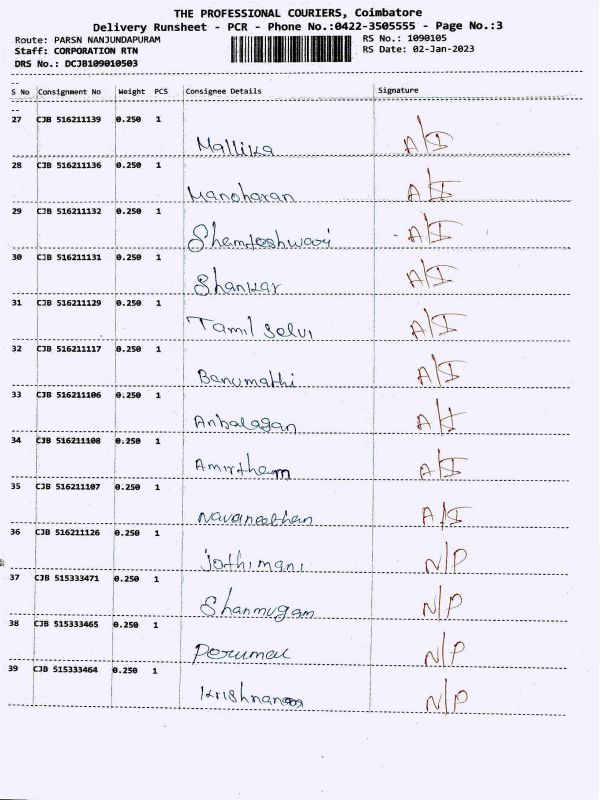 THE PROFESSIONAL COURIERS, Coimbatore
Delivery Runsheet - PCR - Phone No.:0422-3505555 - Page No.:3
Route: PARSN NANJUNDAPURAM RS No.: 1090105
Staff: CORPORATION RTN RS Date: 02-Jan-2023
DRS No.: DCJB109010503
S No Consignment No Weight PCS Consignee Details Signature
27 CJB 516211139 0.250 1
Mallika A/I
28 CJB 516211136 0.250 1
Manoharan A/I
29 CJB 516211132 0.250 1
A/I
30 CJB 516211131 0.250 1
Shankar A/I
31 CJB 516211129 0.250 1
Tamil Selvi A/I
32 CJB 516211117 0.250 1
Banumathi A/I
33 CJB 516211106 0.250 1
Anbalagan A/I
34 CJB 516211108 0.250 1
Amirtham A/I
35 CJB 516211107 0.250 1
Navaneethan A/I
36 CJB 516211126 0.250 1
Jothimani N/P
37 CJB 515333471 0.250 1
Shanmugam N/P
38 CJB 515333465 0.250 1
Perumal N/P
39 CJB 515333464 0.250 1
N/P